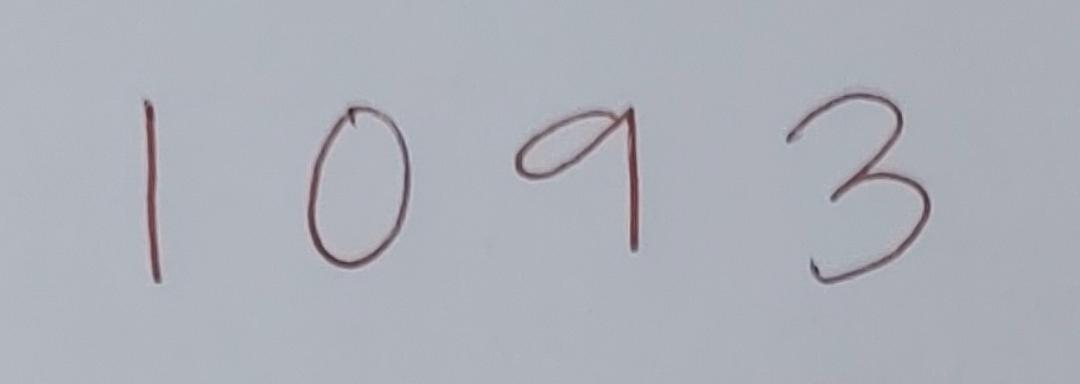 1 0 9 3